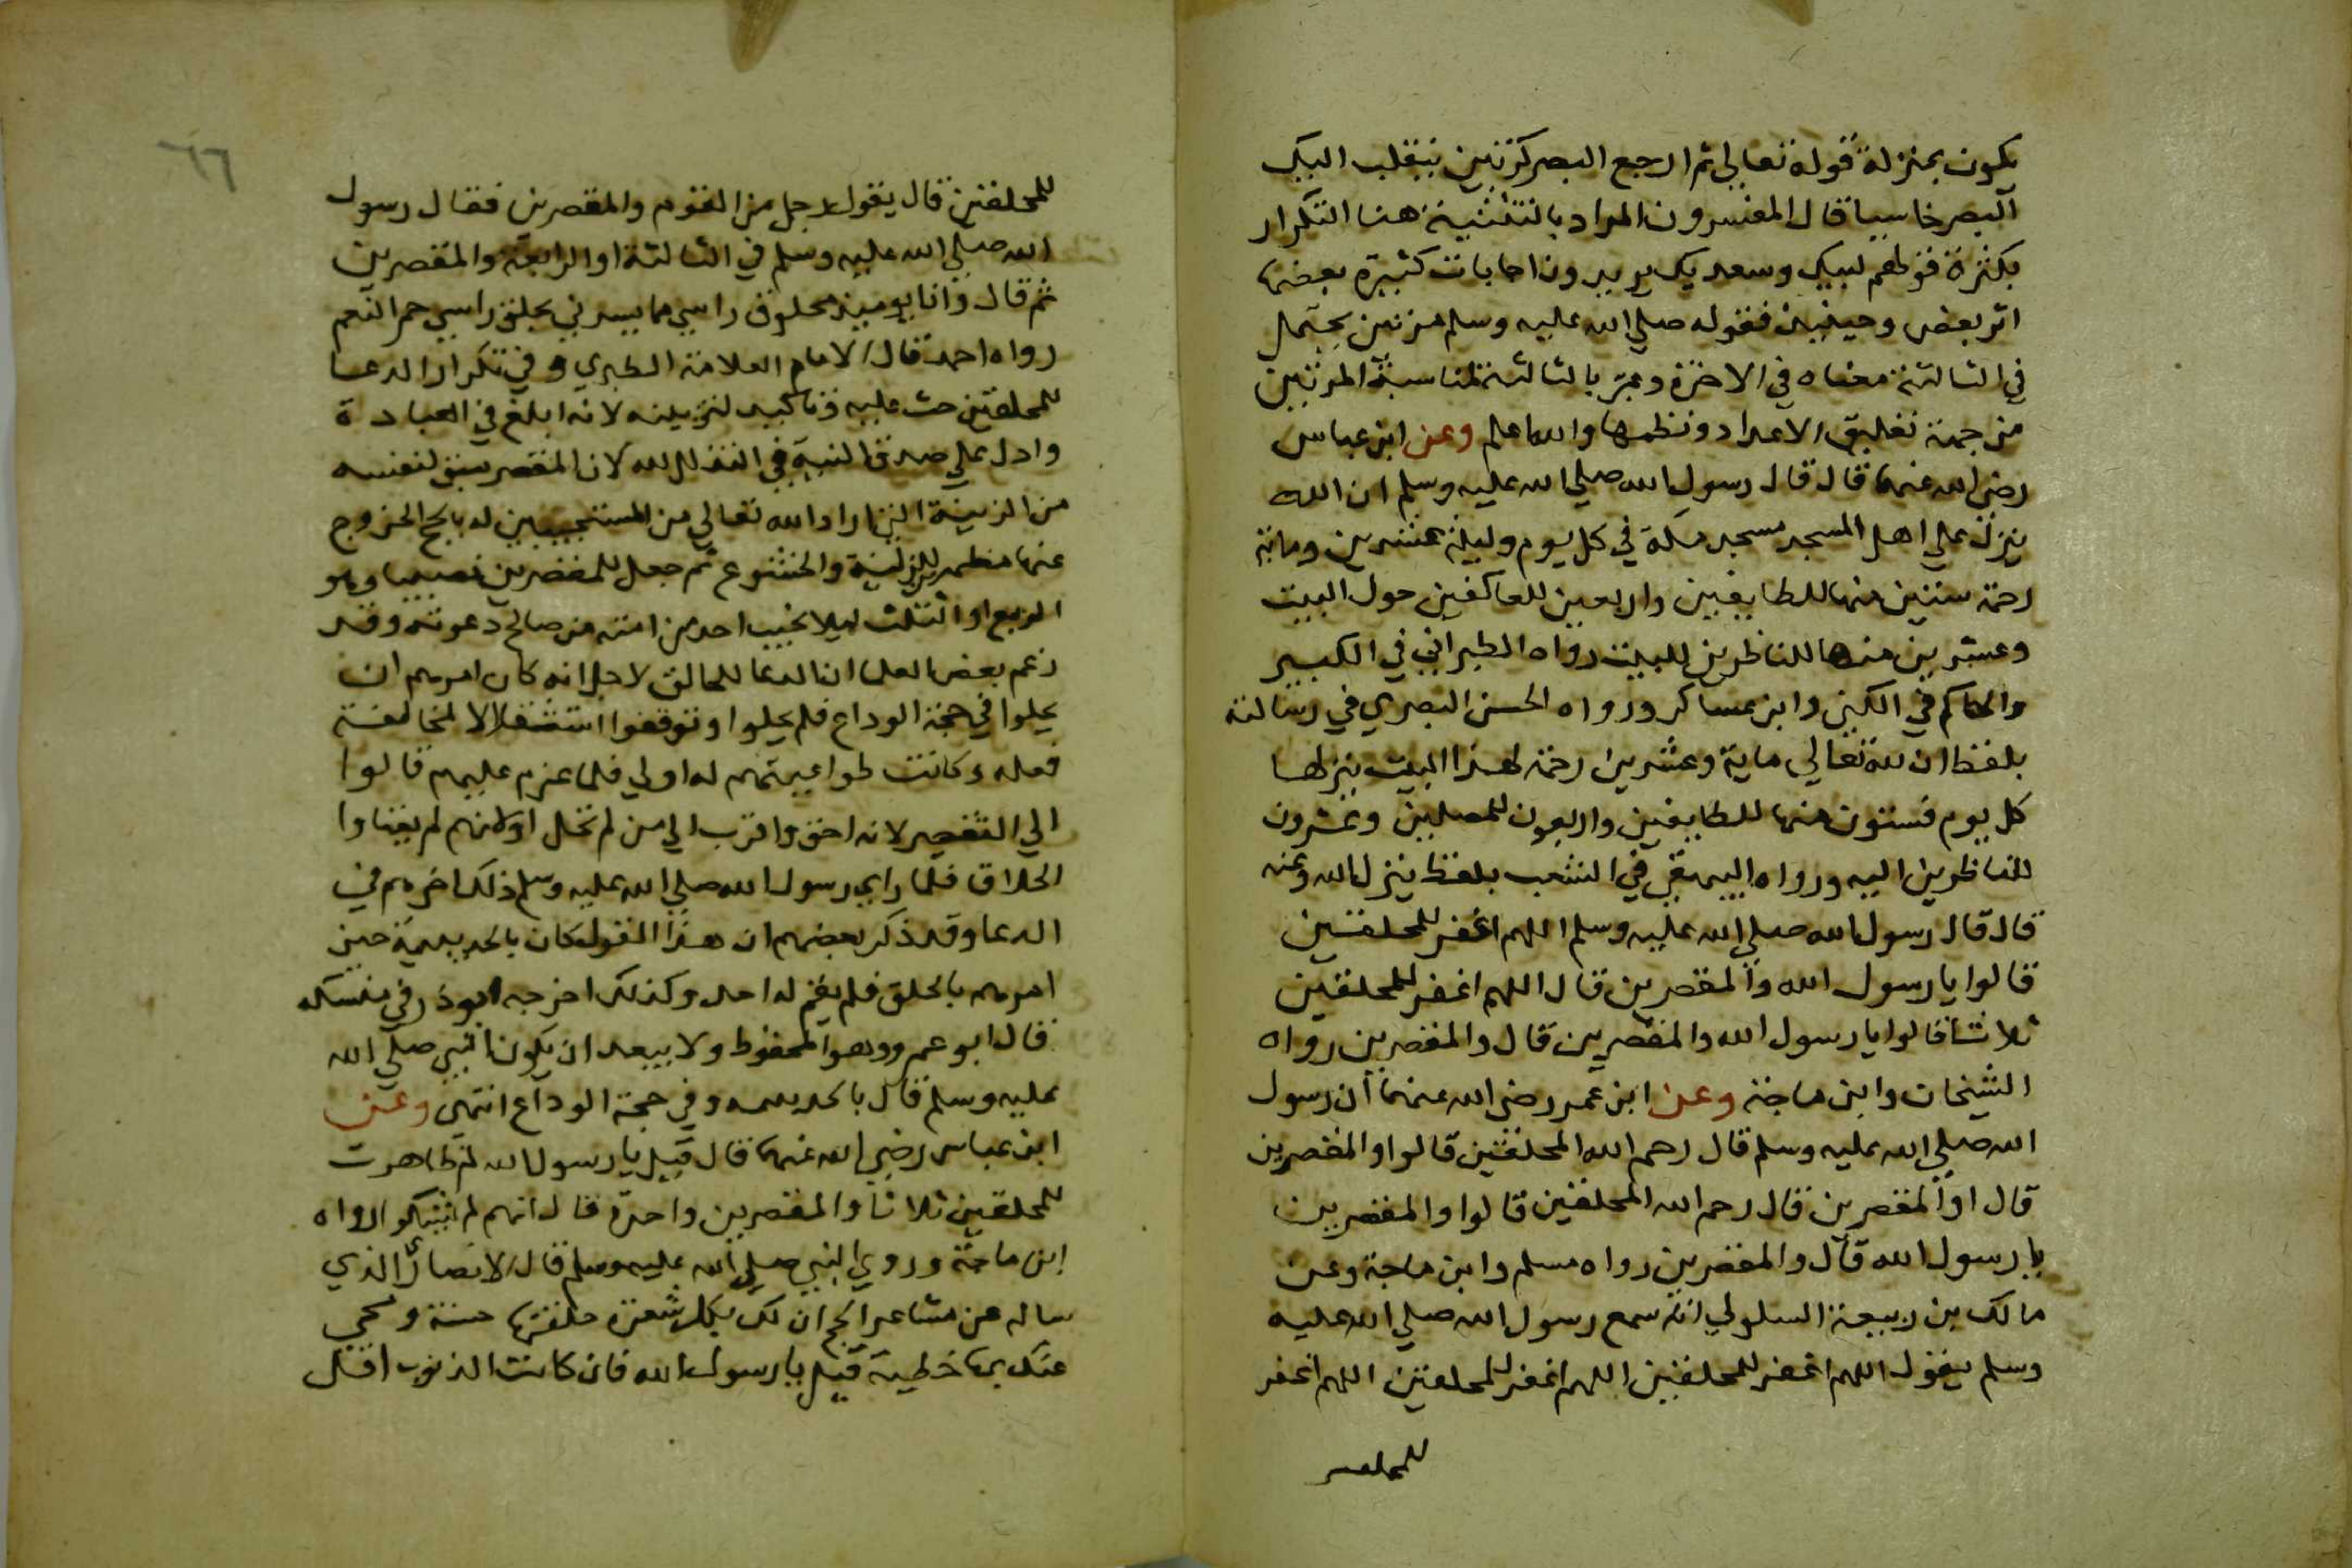 يكون بمنزلة قوله تعالى ثم ارجع البصر كرتين ينقلب اليك
البصر خاسيا قال المفسرون المراد بالتثنية هنا التكرار
بكثرة فقولهم لبيك وسعديك يريدون اجابات كثيرة بعضها
اثر بعض وحينيذ فقوله صلي الله عليه وسلم مرتين يحتمل
في الثالثة معناه في الاخرة وعبر بالثالثة لمناسبة المرتين
من جهة تعليق الاعداد ونظمها والله اعلم وعن ابن عباس
رضي الله عنهما قال قال رسول الله صلي الله عليه وسلم ان الله
ينزل علي اهل المسجد مسجد مكة في كل يوم وليلة عشرين وماية
رحمة ستين منها للطايفين واربعين للعاكفين حول البيت
وعشرين منها للناظرين للبيت رواه الطبراني في الكبير
والحاكم في الكني وابن عساكر ورواه الحسن البصري في رسالته
بلفظ ان لله تعالي ماية وعشرين رحمة لهذا البيت ينزلها
كل يوم فستون منها للطايفين واربعون للمصلين وعشرون
للناظرين اليه ورواه البيهقي في الشعب بلفظ ينزل الله وعنه
قال قال رسول الله صلي الله عليه وسلم اللهم اغفر للمحلقين
قالوا يا رسول الله والمقصرين قال اللهم اغفر للمحلقين
ثلاثا قالوا يا رسول الله والمقصرين قال والمقصرين رواه
الشيخان وابن ماجة وعن ابن عمر رضي الله عنهما ان رسول
الله صلي الله عليه وسلم قال رحم الله المحلقين قالوا والمقصرين
قال او المقصرين قال رحم الله المحلقين قالوا والمقصرين
يا رسول الله قال والمقصرين رواه مسلم وابن ماجة وعن
مالك بن ربيعة السلولي انه سمع رسول الله صلي الله عليه
وسلم يقول اللهم اغفر للمحلقين اللهم اغفر للمحلقين اللهم اغفر
للمحلقين
٦٦
للمحلقين قال يقول رجل من القوم والمقصرين فقال رسول
الله صلي الله عليه وسلم في الثالثة او الرابعة والمقصرين
ثم قال وانا يوميذ محلوق راسي مما يسرني بحلق راسي حمر النعم
رواه احمد قال الامام العلامة الطبري وفي تكرار الدعا
للمحلقين حث عليه وتاكيد لنزيلنه لانه ابلغ في العبادة
وادل علي صدق النية في التذلل لله لان المقصر مبق لنفسه
من الزينة التي اراد الله تعالي من المستجيبين له بالحج الخروج
عنها مظهر للزينة والخشوع ثم جعل للمقصرين نصيبا وهو
الربع او الثلث ليلا يخيب احد من امته من صالح دعوته وقد
زعم بعض العلما ان الدعا للحالق لاجل انه كان امرهم ان
يحلوا في حجة الوداع فلم يحلوا وتوقفوا استثقلالا لمخالفة
فعله وكانت طواعيتهم له اولي فلما عزم عليهم قالوا
الي التقصير لانه اخف واقرب الي من لم تحل او لانهم لم يعتادوا
الحلاق فلما راي رسول الله صلي الله عليه وسلم ذلك اخرهم في
الدعا وقد ذكر بعضهم ان هذا القول كان بالحديبية حين
امرهم بالحلق فلم يقم له احد وكذلك اخرجه ابوذر في منسكه
قال ابو عمرو وهو المحفوظ ولا يبعد ان يكون النبي صلي الله
عليه وسلم قال بالحديبية وفي حجة الوداع انتهي وعن
ابن عباس رضي الله عنهما قال قيل يا رسول الله لم ظاهرت
للمحلقين ثلاثا والمقصرين واحدة قال انهم لم يشكوا رواه
ابن ماجة وروي النبي صلي الله عليه وسلم قال للانصاري الذي
ساله عن مشاعر الحج ان لك بكل شعرة حلقتها حسنة ومحي
عنك بها خطية قيل يا رسول الله فان كانت الذنوب اقل